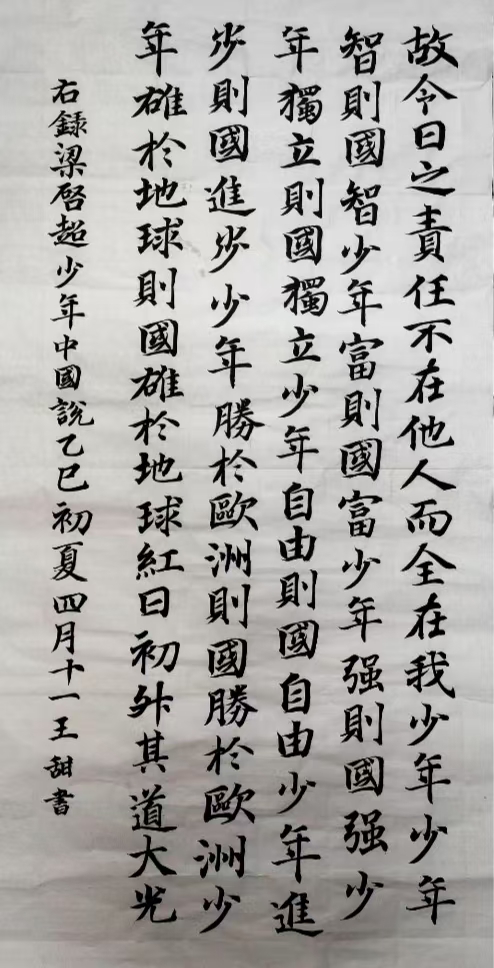 故今日之責任不在他人而全在我少年少年
智則國智少年富則國富少年强則國强少
年獨立則國獨立少年自由則國自由少年進
步則國進步少年勝於歐洲則國勝於歐洲少
年雄於地球則國雄於地球紅日初升其道大光
右録梁啓超少年中國說乙巳初夏四月十一王甜書